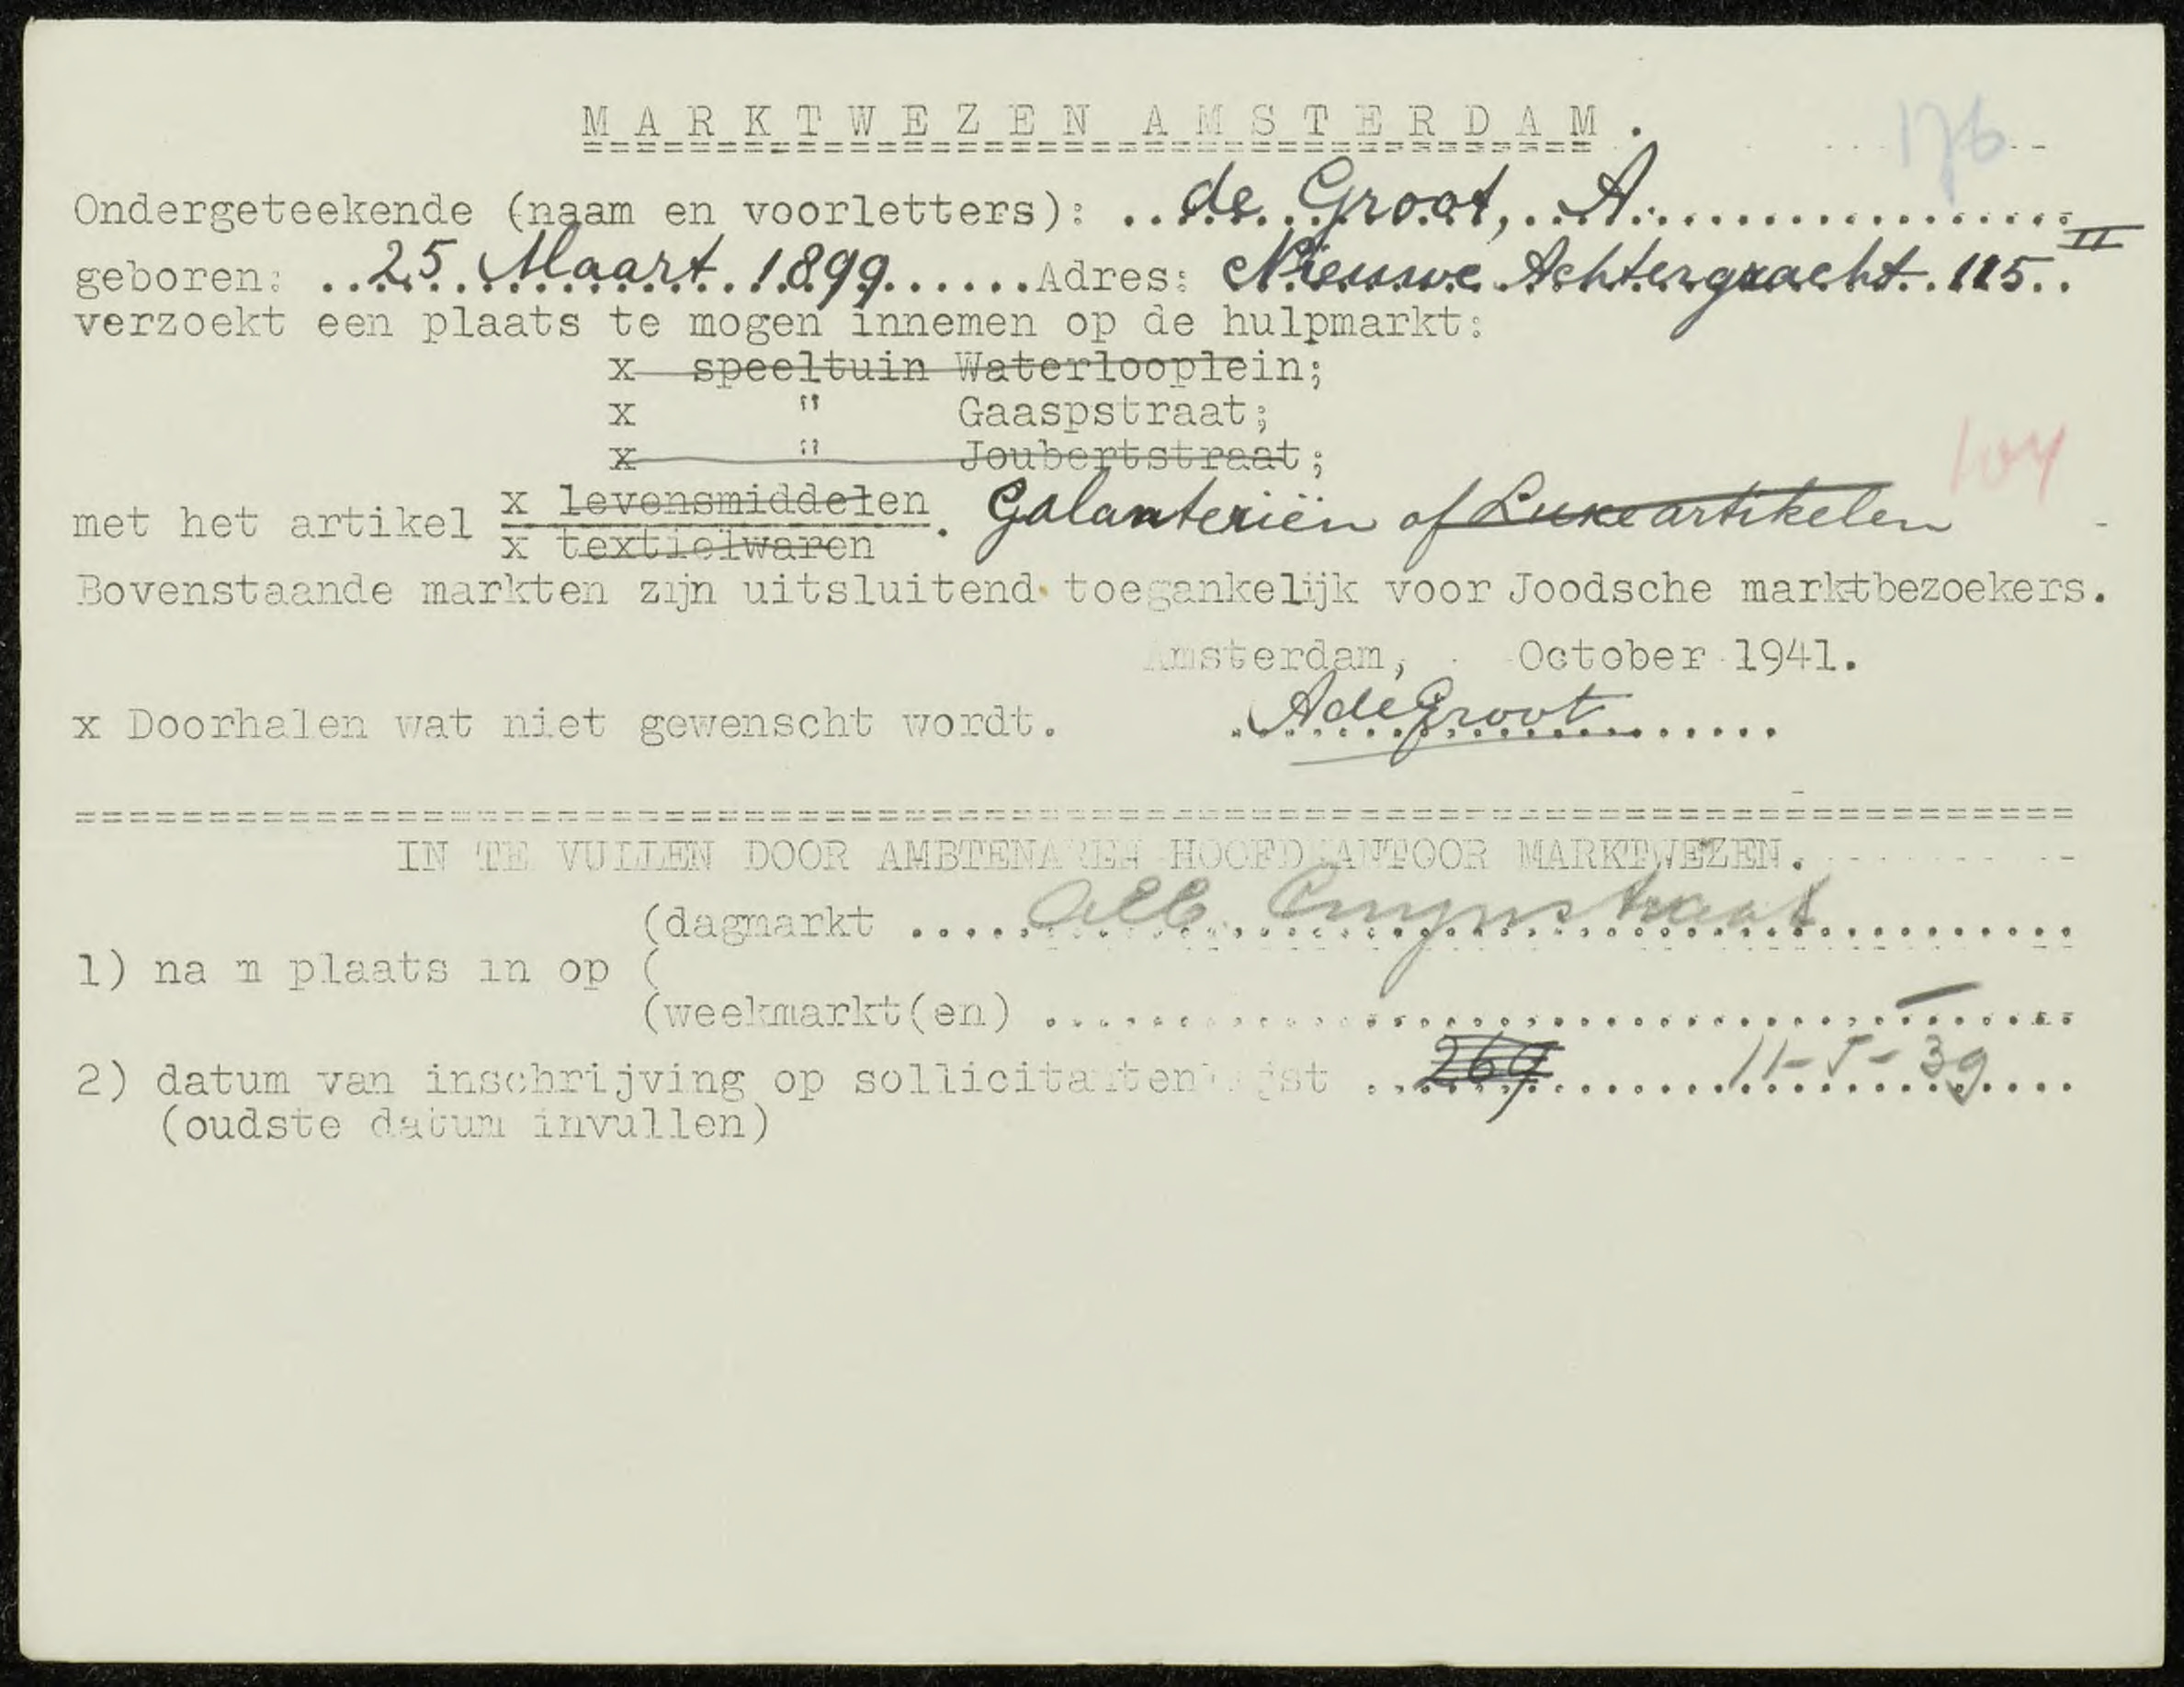 MARKTWEZEN AMSTERDAM. 176
Ondergeteekende (naam en voorletters): de Groot, A.
geboren: 25 Maart 1899 Adres: Nieuwe Achtergracht 115 II
verzoekt een plaats te mogen innemen op de hulpmarkt:
x speeltuin Waterlooplein;
x " Gaaspstraat;
x " Joubertstraat;
104
x levensmiddelen
met het artikel . Galanteriën of Luxeartikelen
x textielwaren
Bovenstaande markten zijn uitsluitend toegankelijk voor Joodsche marktbezoekers.
Amsterdam, October 1941.
x Doorhalen wat niet gewenscht wordt. AdeGroot
IN TE VULLEN DOOR AMBTENAREN HOOFDKANTOOR MARKTWEZEN.
(dagmarkt Alb. Cuypstraat
1) na m plaats in op (
(weekmarkt(en) —
2) datum van inschrijving op sollicitantenlijst 269 11-5-39
(oudste datum invullen)